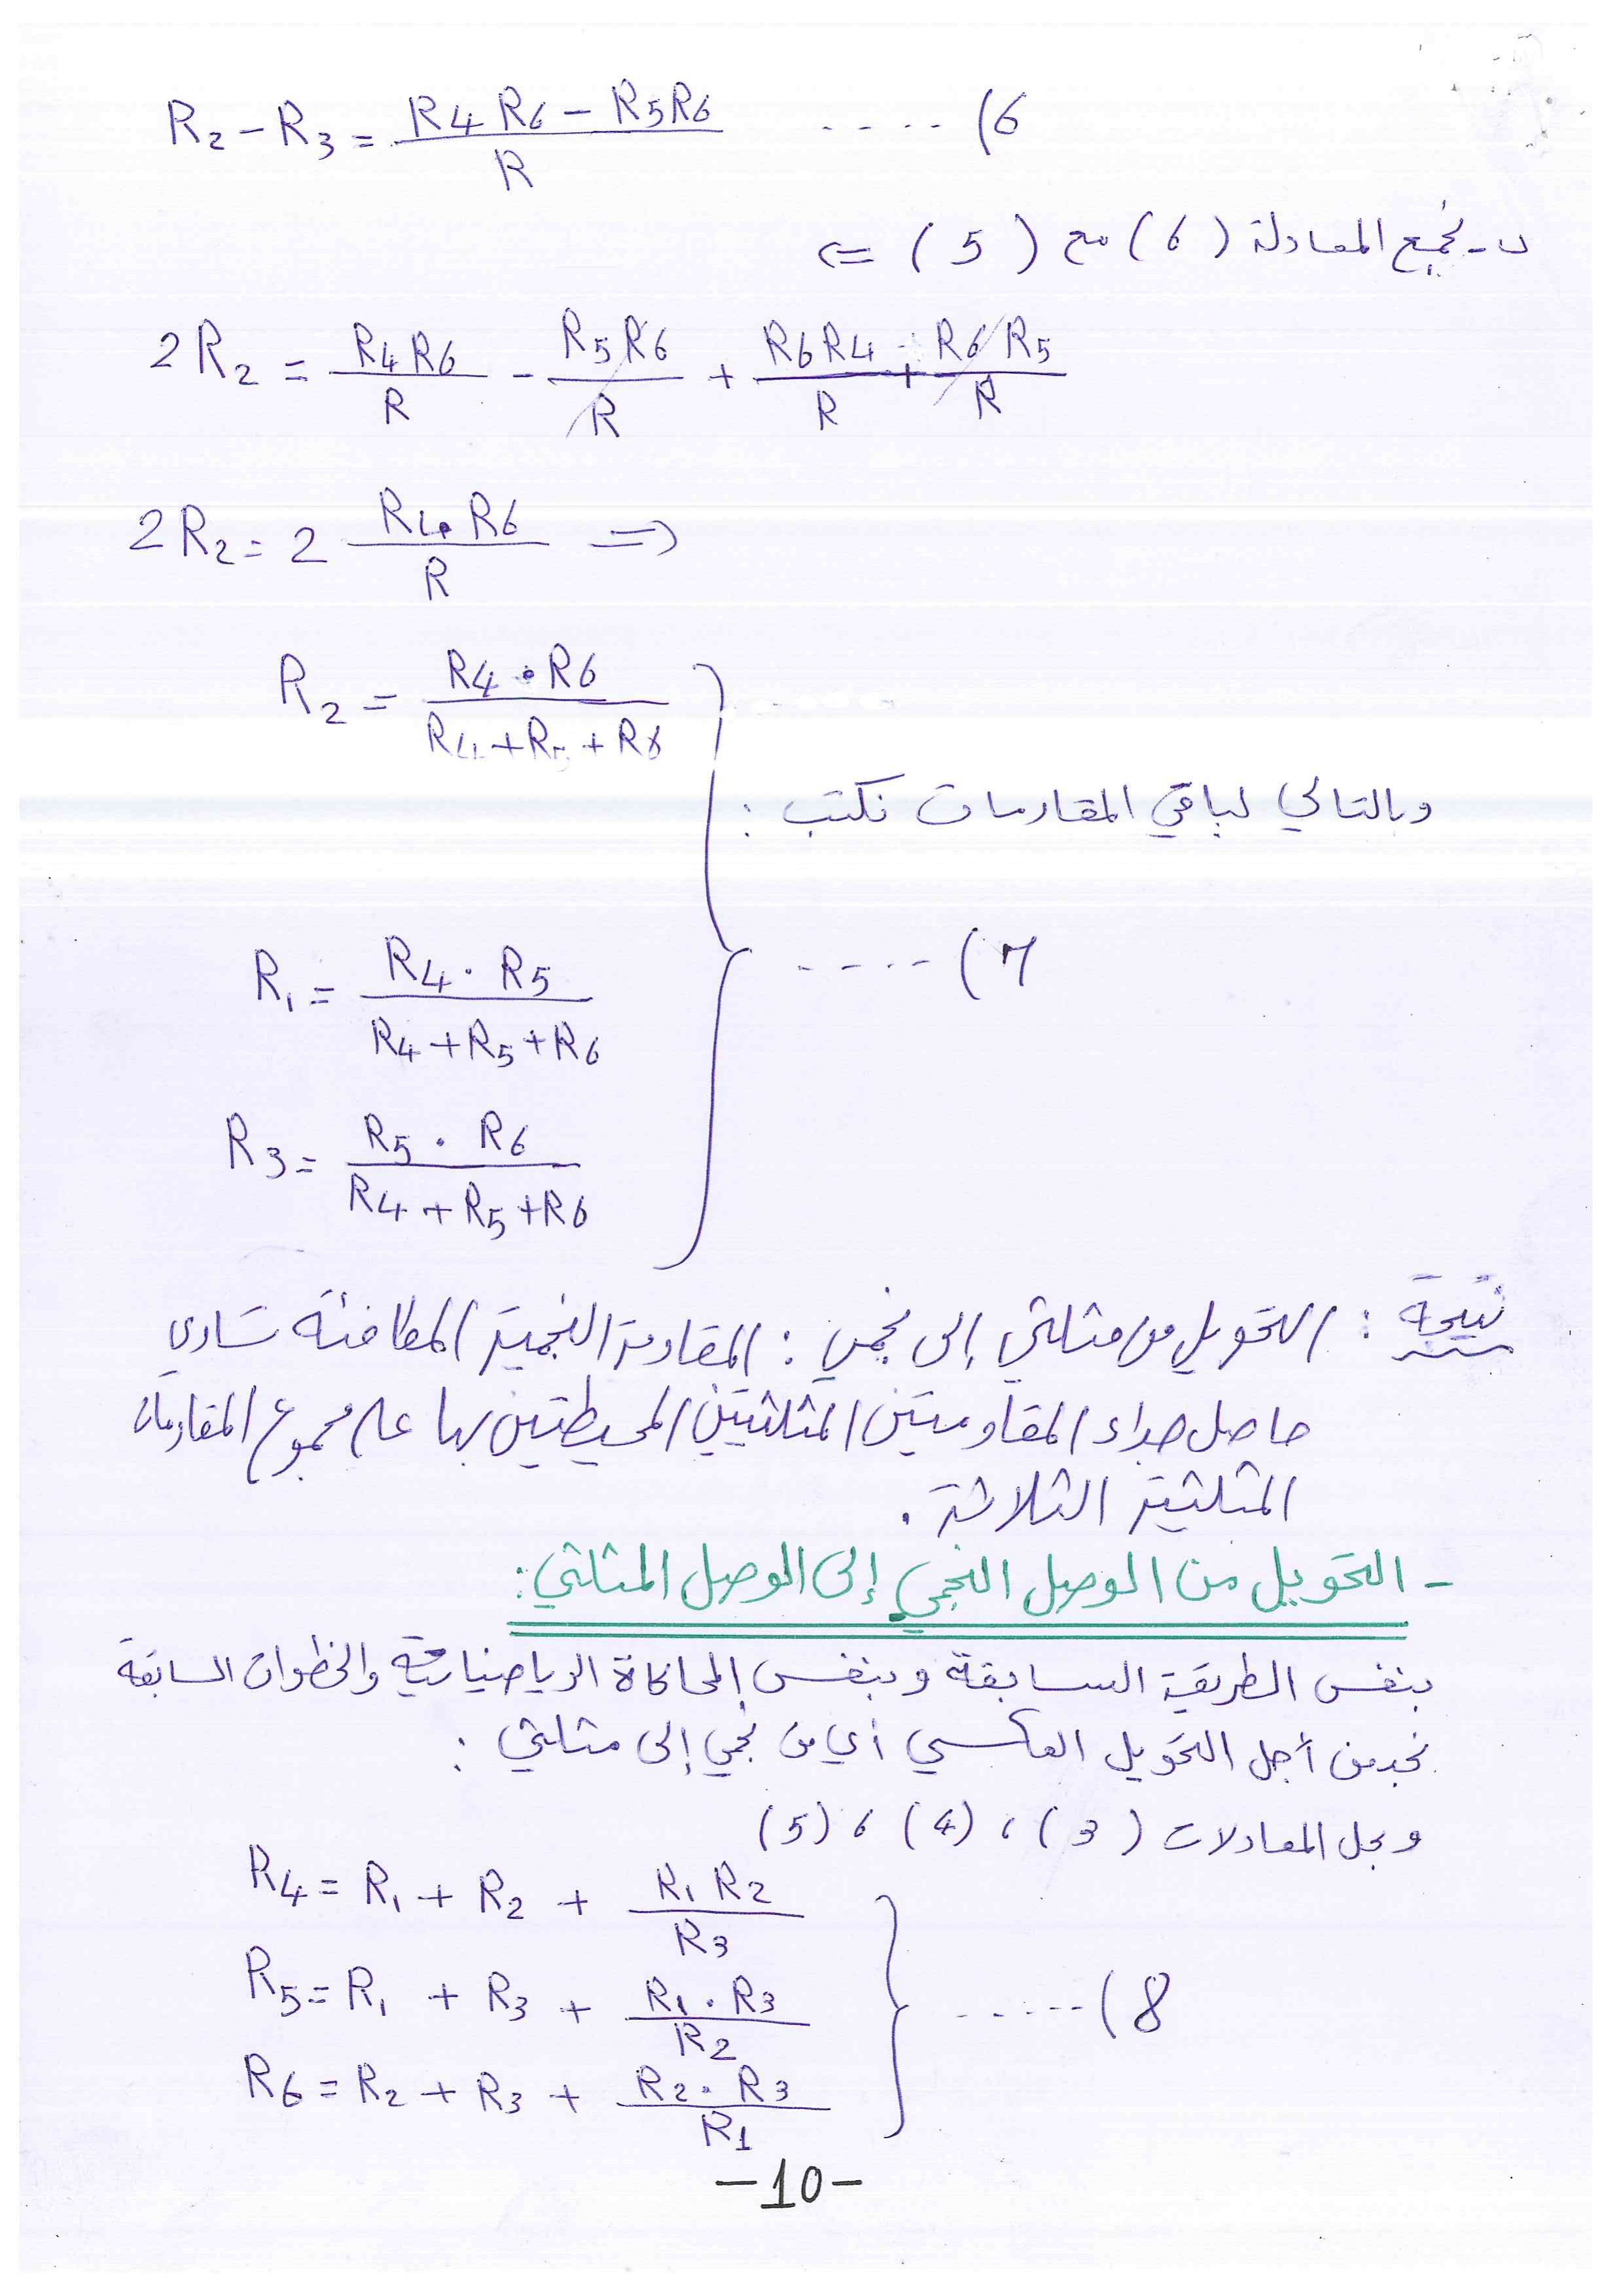 R2 - R3 = (R4 R6 - R5 R6) / R ..... (6
ب- نجمع المعادلة (6) مع (5) ⇐
2 R2 = R4 R6 / R - R5 R6 / R + R6 R4 / R + R6 R5 / R
2 R2 = 2 R4 . R6 / R ⇒
R2 = R4 . R6 / (R4 + R5 + R6)
وبالتالي لباقي المقاومات نكتب :
R1 = R4 . R5 / (R4 + R5 + R6) ..... (7
R3 = R5 . R6 / (R4 + R5 + R6)
نتيجة : التحويل من مثلثي إلى نجمي : المقاومة النجمية المكافئة تساوي
حاصل جداء المقاومتين المثلثيتين المحيطتين بها على مجموع المقاومات
المثلثية الثلاثة .
- التحويل من الوصل النجمي إلى الوصل المثلثي :
بنفس الطريقة السابقة وبنفس المحاكاة الرياضياتية والخطوات السابقة
نجد من أجل التحويل العكسي أي من نجمي إلى مثلثي :
وبحل المعادلات (3) ، (4) ، (5)
R4 = R1 + R2 + R1 R2 / R3
R5 = R1 + R3 + R1 . R3 / R2 ...... (8
R6 = R2 + R3 + R2 . R3 / R1
-10-